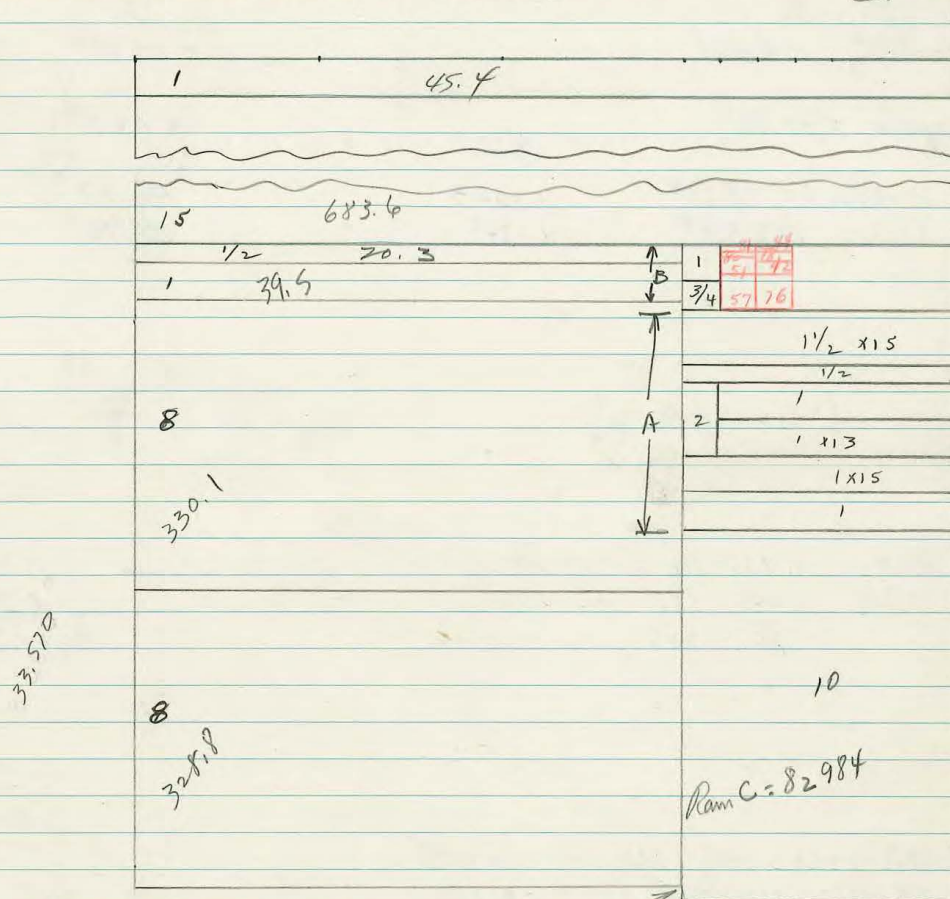 1 45.4
15 683.6
1/2 20.3
1 39.5
B
1
3/4
51 42
57 76
1 1/2 x15
1/2
2
1
1 x13
1x15
1
8
330.1
A
33,570
8
328.8
10
C = 82984